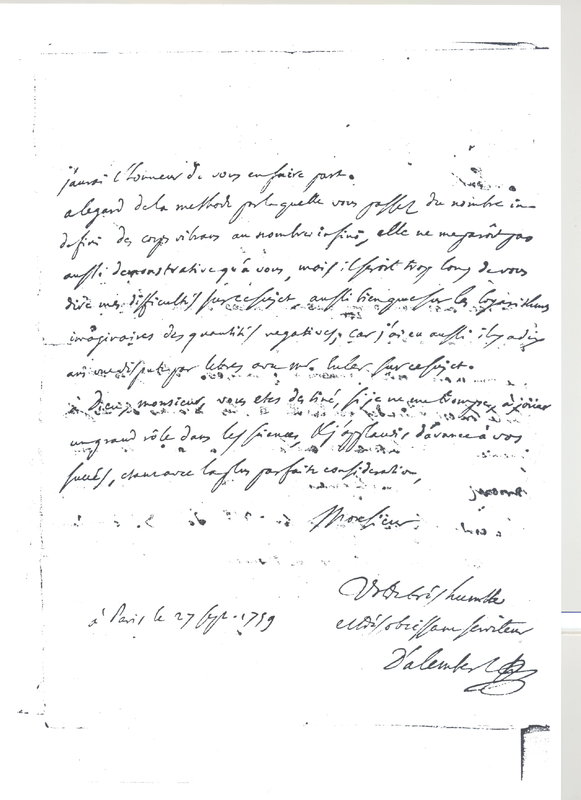 j'aurai l'honneur de vous en faire part.
a l'egard de la methode par laquelle vous passez du nombre in-
defini des corps vibrans au nombre infini, elle ne me paroît pas
aussi demonstrative qu'à vous, mais il seroit trop long de vous
dire mes difficultés sur ce sujet, aussi bien que sur les logarithmes
imaginaires des quantités negatives; car j'ai eu aussi il y a dix
ans une dispute par lettres avec mr. Euler sur ce sujet.
à Dieu, monsieur, vous etes destiné, si je ne me trompe, à jouer
un grand rôle dans les sciences, & j'applaudis d'avance à vos
succés, etant avec la plus parfaite consideration,
Monsieur
Votre tres humble
et tres obeissant serviteur
D'alembert
à Paris le 27 sept. 1759